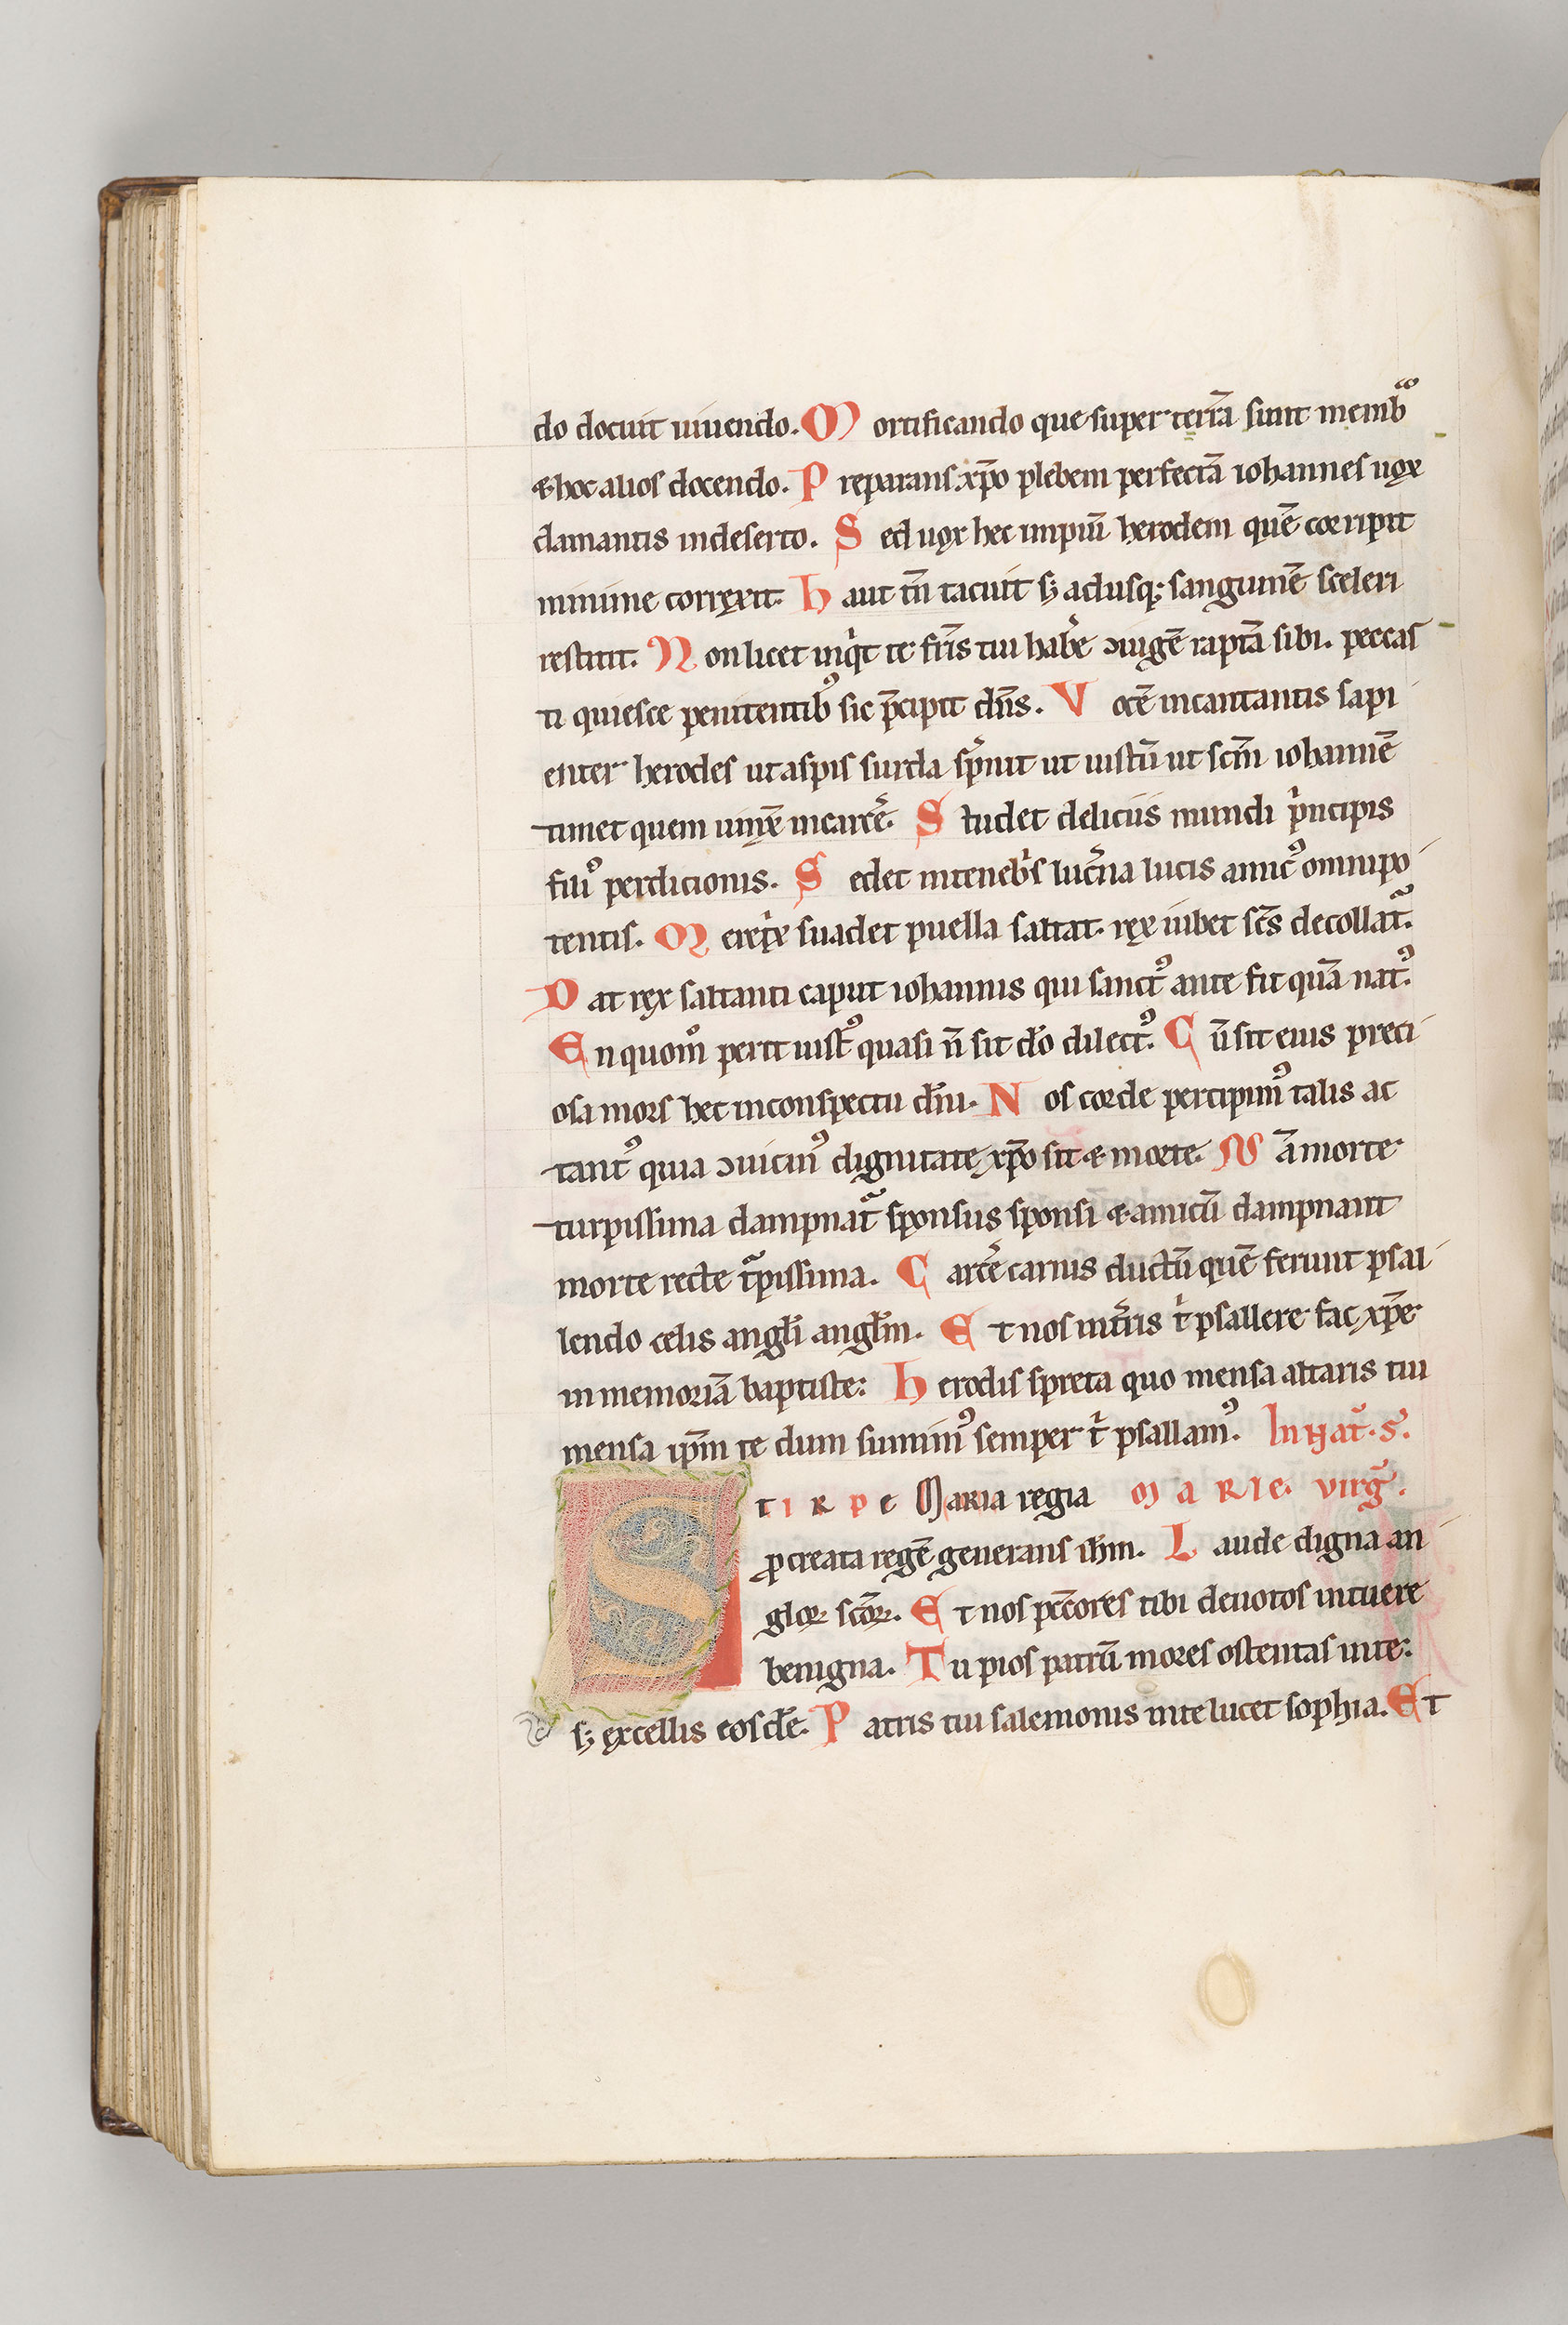 do docuit uiuendo. Mortificando que super terrā sunt memb
& hoc alios docendo. Preparans xp̄o plebem perfectā iohannes uox
clamantis indeserto. Sed uox hec impiū herodem quē corripit
minime correxit. Haut tm̄ tacuit sꝫ adusqꝫ sanguinē sceleri
restitit. Non licet inqͥt te fr̄is tui hab̓e ↄiugē raptā sibi. peccas
ti quiesce penitentibꝰ sic p̄cipit dn̄s. Vocē incantantis sapi
enter herodes ut aspis surda sp̓nit ut iustū ut sc̄m iohannē
timet quem uinxē incarc̓e. Studet deliciis mundi pͥncipis
filiꝰ perdicionis. Sedet intenebͥs luc̓na lucis amicꝰ omnipo
tentis. Meretͥx suadet puella saltat. rex iubet sc̄s decollatᷓ.
Dat rex saltanti caput iohannis qui sanctꝰ ante fit quā natꝰ.
En quom̊ perit iustꝰ quasi n̄ sit do̅ dilectꝰ. Cū sit eius preci
osa mors hec inconspectu dn̄i. Nos corde percipimꝰ talis ac
tantꝰ quia ↄuicinꝰ dignitate xp̄o sit & morte. Nā morte
turpissima dampnatᷓ sponsus sponsi & amicū dampnant
morte recte tᷓpissima. Carc̓e carnis ductū quē ferunt psal
lendo celis angl̄i angl̄m. Et nos int̓ris tͥ psallere fac xp̄e
in memoriā baptiste: Herodis spreta quo mensa altaris tui
mensa ip̄m te dum sumimꝰ semper tͥ psallamꝰ. In nat̄. s̄.
Stirpe Maria regia MARIE. virḡ.
ꝓcreata regē generans ih̄m. Laude digna an
gloꝝ sc̄oꝝ. Et nos pccōres tibi deuotos intuere
benigna. Tu pios patrū mores ostentas inte:
sꝫ excellis eosdē. Patris tui salemonis inte lucet sophia. Et